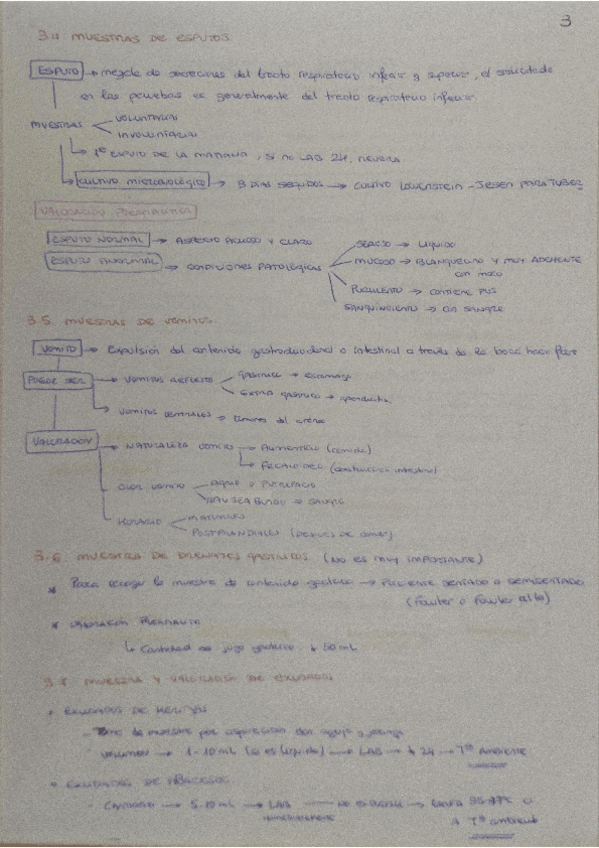 3
3.4. MUESTRAS DE ESPUTOS
ESPUTO → mezcla de secreciones del tracto respiratorio inferior y superior, el solicitado
en las pruebas es generalmente del tracto respiratorio inferior.
MUESTRAS
VOLUNTARIAS
INVOLUNTARIAS
1er ESPUTO DE LA MAÑANA, SI NO LAB 2H, NEVERA
CULTIVO MICROBIOLÓGICO → 3 DÍAS SEGUIDOS → CULTIVO LOWENSTEIN - JESEN PARA TUBER
VALORACIÓN
ESPUTO NORMAL → ASPECTO ACUOSO Y CLARO
ESPUTO ANORMAL → CONDICIONES PATOLÓGICAS
SEROSO → LÍQUIDO
MUCOSO → BLANQUECINO Y MUY ADHERENTE
con moco
PURULENTO → CONTIENE PUS
SANGUINOLENTO → CON SANGRE
3.5. MUESTRAS DE VÓMITOS
VÓMITO → Expulsión del contenido gastroduodenal o intestinal a través de la boca hacia fuera
PUEDE SER
VÓMITOS REFLEJO
GÁSTRICO → estómago
EXTRA GÁSTRICO → apendicitis
VÓMITOS CENTRALES → tumores del cráneo
VALORACIÓN
NATURALEZA VÓMITO → ALIMENTICIO (comida)
FECALOIDEO (obstrucción intestinal)
OLOR VÓMITO
AGRIO O PUTREFACTO
NAUSEABUNDO → SANGRE
HORARIO
MATUTINOS
POSTPRANDIALES (DESPUÉS DE COMER)
3.6. MUESTRAS DE DRENAJES GÁSTRICOS (NO ES MUY IMPORTANTE)
* Para recoger la muestra de contenido gástrico → PACIENTE SENTADO O SEMISENTADO
(Fowler o Fowler alto)
* VALORACIÓN
↳ Cantidad de jugo gástrico 50 mL
3.7. MUESTRA Y VALORACIÓN DE EXUDADOS
• EXUDADOS DE HERIDAS
- Toma de muestra por aspiración con aguja y jeringa
- VOLUMEN → 1-10 mL (si es líquido) → LAB → 2H → Tª AMBIENTE
• EXUDADOS DE ABSCESOS
- CANTIDAD → 5-10 mL → LAB
INMEDIATAMENTE
A Tª ambiente